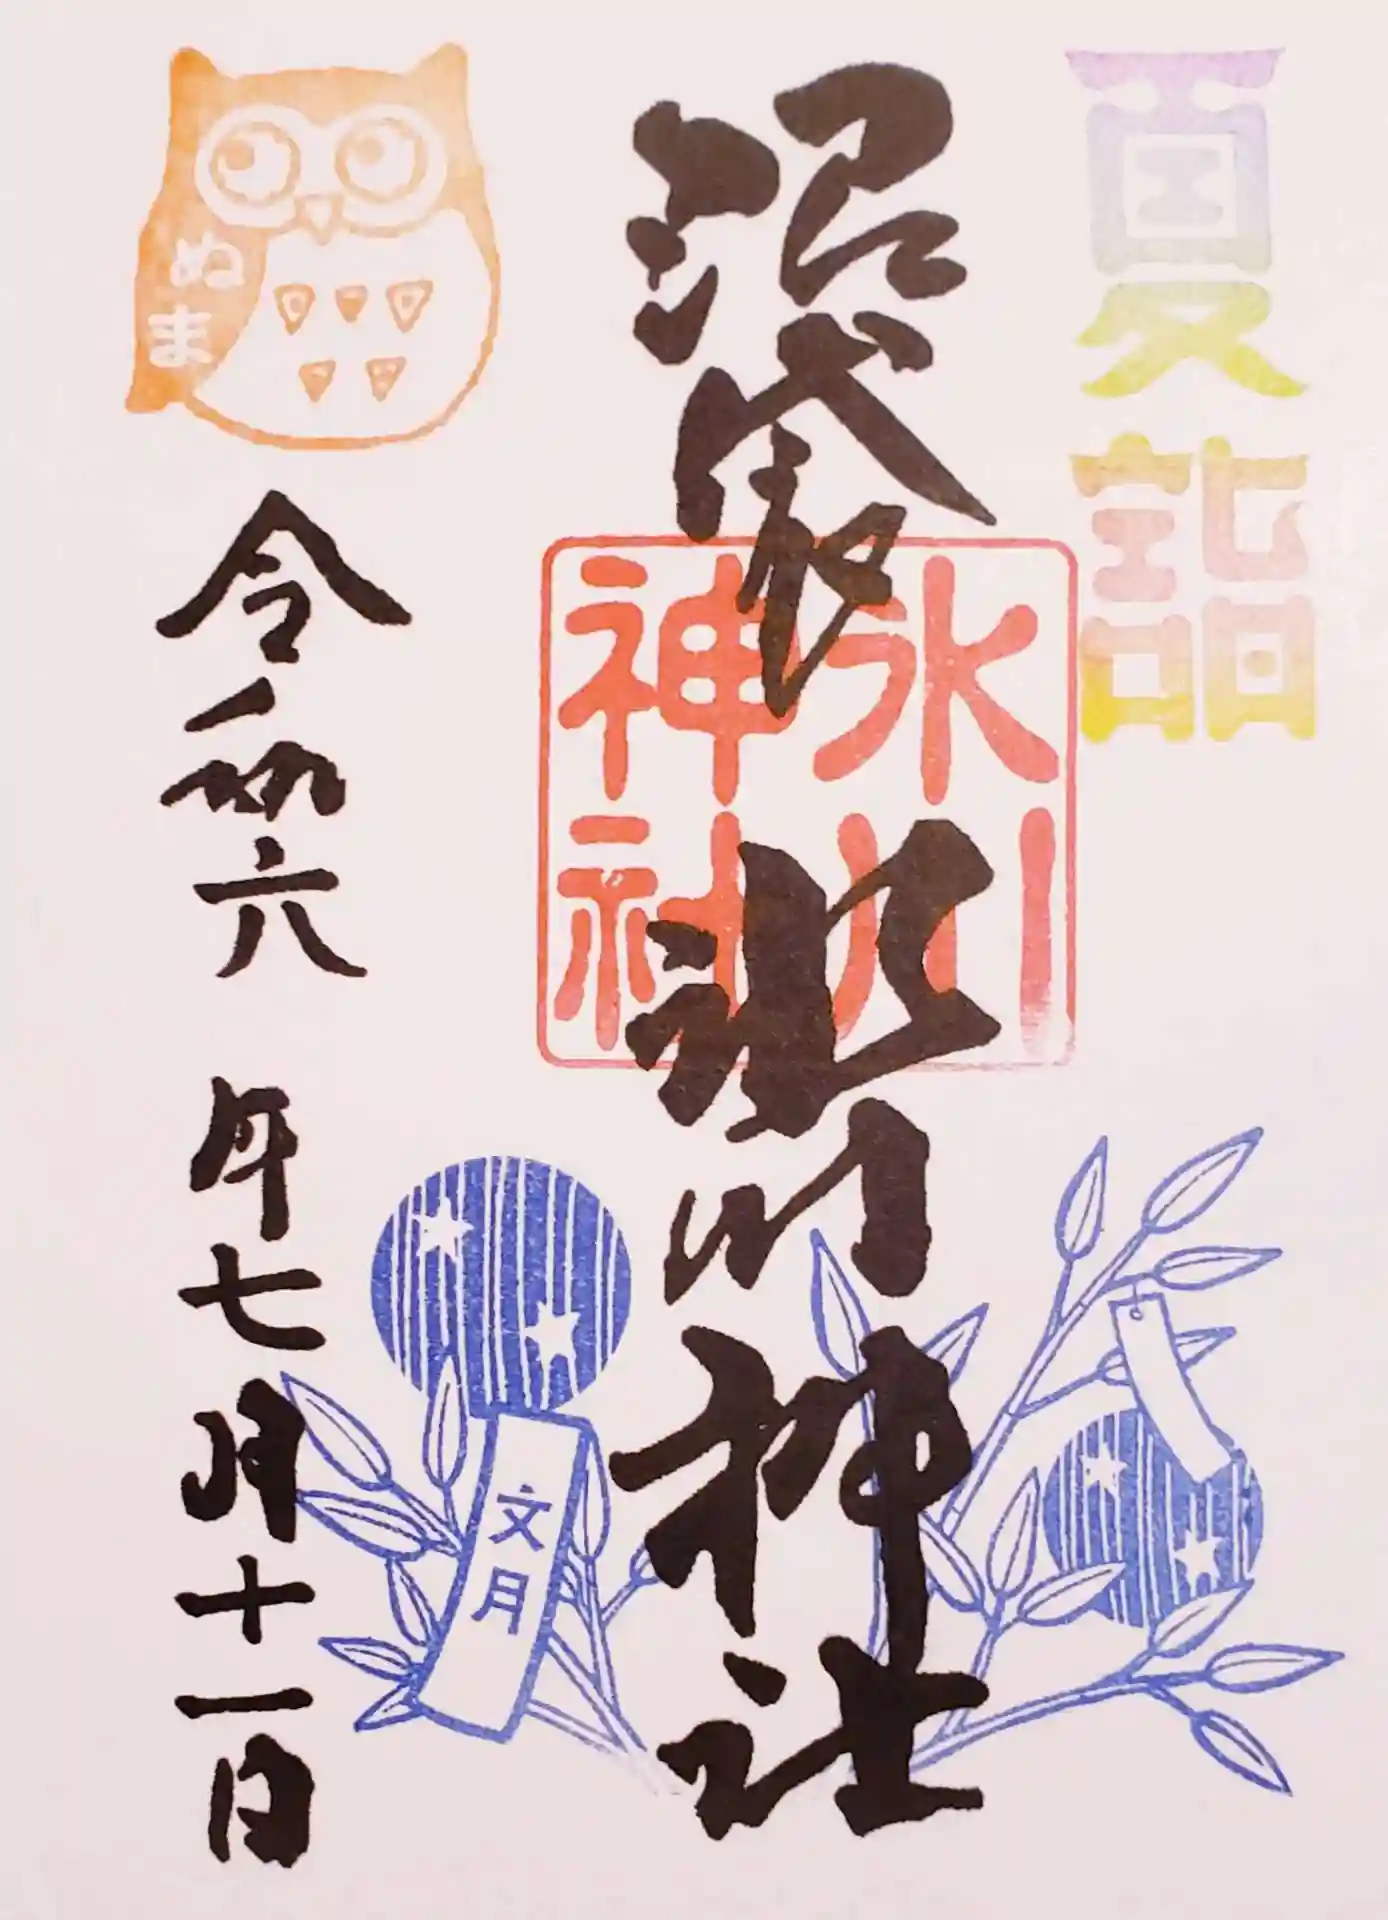 夏詣
沼袋氷川神社
氷川
神社
ぬま
令和六年七月十一日
文月